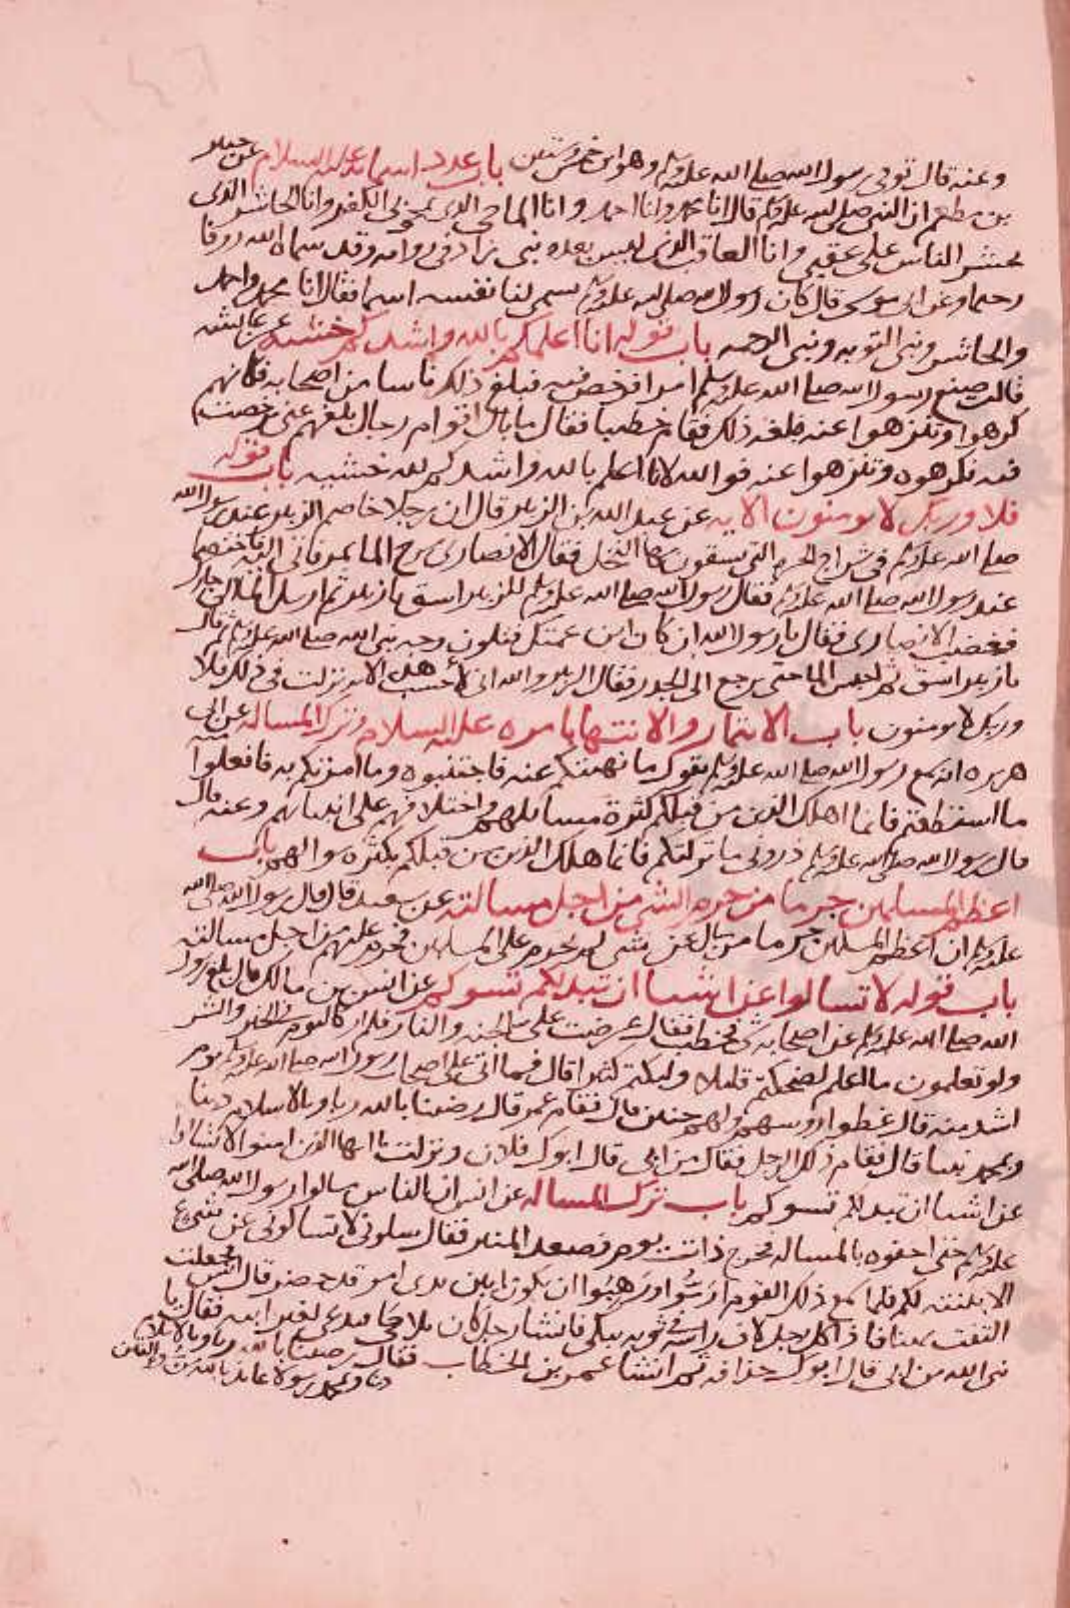 وعنه قال توفى رسول الله صلى الله عليه وسلم وهو ابن خمس وستين باب عدد اسمائه عليه السلام عن جبير
بن مطعم ان النبي صلى الله عليه وسلم قال انا محمد وانا احمد وانا الماحي الذي يمحى بي الكفر وانا الحاشر الذي
يحشر الناس على عقبي وانا العاقب الذي ليس بعده نبي زاد في رواية وقد سماه الله روفا
رحيما وعن ابي موسى قال كان رسول الله صلى الله عليه وسلم يسمي لنا نفسه اسما فقال انا محمد واحمد
والحاشر ونبي التوبه ونبي الرحمه باب قوله انا اعلمكم بالله واشدكم خشيه عن عايشه
قالت صنع رسول الله صلى الله عليه وسلم امرا فرخص فيه فبلغ ذلك ناسا من اصحابه فكانهم
كرهوا وتنزهوا عنه فبلغه ذلك فقام خطيبا فقال ما بال اقوام رجال بلغهم عني رخصت
فيه فكرهوه وتنزهوا عنه فوالله لانا اعلم بالله واشدكم لله خشيه باب قوله
فلا وربك لا يومنون الايه عن عبد الله بن الزبير قال ان رجلا خاصم الزبير عند رسول الله
صلى الله عليه وسلم في شراج الحره التي يسقون بها النخل فقال الانصاري سرح الما يمر فابى اليه فاختصم
عند رسول الله صلى الله عليه وسلم فقال رسول الله صلى الله عليه وسلم للزبير اسق يا زبير ثم ارسل الما الى جارك
فغضب الانصاري فقال يا رسول الله ان كان ابن عمتك فتلون وجه نبي الله صلى الله عليه وسلم ثم قال
يا زبير اسق ثم احبس الما حتى يرجع الى الجدر فقال الزبير والله اني لاحسب هذه الايه نزلت في ذلك فلا
وربك لا يومنون باب الايتمار والانتها بامره عليه السلام وترك المساله عن ابي
هريره انه سمع رسول الله صلى الله عليه وسلم يقول ما نهيتكم عنه فاجتنبوه وما امرتكم به فافعلوا
ما استطعتم فانما اهلك الذين من قبلكم كثرة مسايلهم واختلافهم على انبيائهم وعنه قال
قال رسول الله صلى الله عليه وسلم ذروني ما تركتكم فانما هلك الذين من قبلكم بكثره سوالهم باب
اعظم المسلمين جرما من حرم الشي من اجل مسالته عن سعيد قال قال رسول الله صلى الله
عليه وسلم ان اعظم المسلمين جرما من سال عن شي لم يحرم على المسلمين فحرم عليهم من اجل مسالته
باب قوله لا تسالوا عن اشيا ان تبد لكم تسوكم عن انس بن مالك قال بلغ رسول
الله صلى الله عليه وسلم عن اصحابه شي فخطب فقال عرضت علي الجنه والنار فلم ار كاليوم في الخير والشر
ولو تعلمون ما اعلم لضحكتم قليلا ولبكيتم كثيرا قال فما اتى على اصحاب رسول الله صلى الله عليه وسلم يوم
اشد منه قال غطوا روسهم ولهم حنين قال فقام عمر قال رضينا بالله ربا وبالاسلام دينا
وبمحمد نبيا قال فقام ذلك الرجل فقال من ابي قال ابوك فلان ونزلت يا ايها الذين امنوا لا تسالوا
عن اشيا ان تبد لكم تسوكم باب ترك المساله عن انس ان الناس سالوا رسول الله صلى الله
عليه وسلم حتى احفوه بالمساله فخرج ذات يوم فصعد المنبر فقال سلوني لا تسالوني عن شي
الا بينته لكم فلما سمع ذلك القوم ارموا ورهبوا ان يكون بين يدي امر قد حضر قال انس فجعلت
التفت يمينا فاذا كل رجل لاف راسه في ثوبه يبكي فانشا رجل كان يلاحى فيدعى لغير ابيه فقال يا
نبي الله من ابي قال ابوك حذافه ثم انشا عمر بن الخطاب فقال رضينا بالله ربا وبالاسلام
دينا وبمحمد رسولا عايذا بالله من الفتن